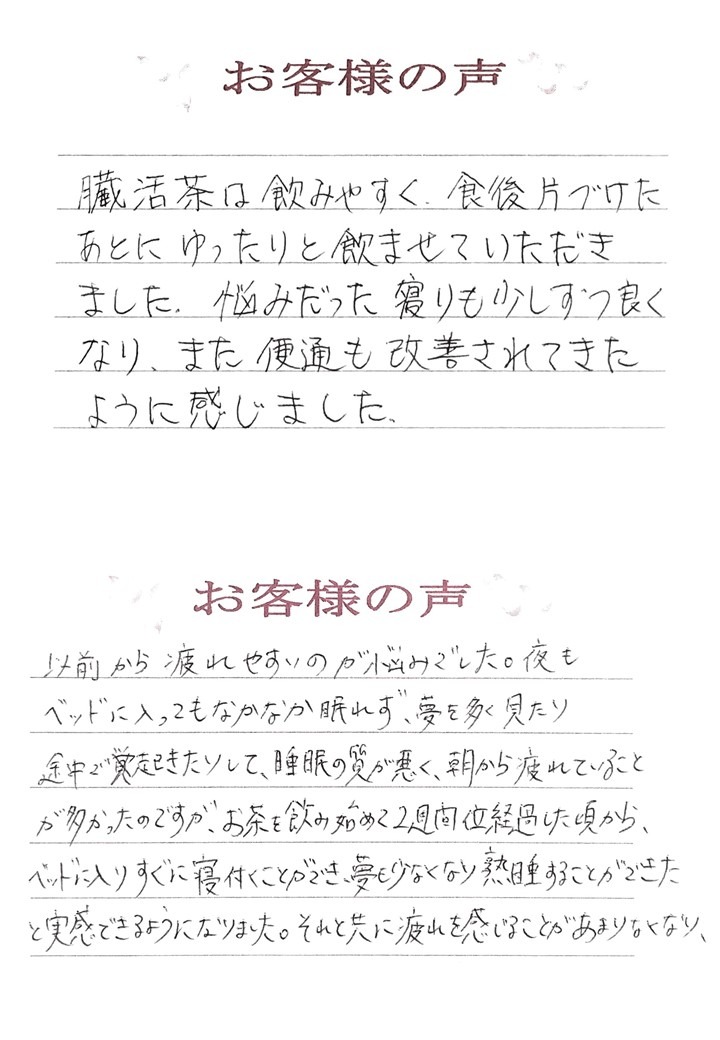 お客様の声
臓活茶は飲みやすく、食後片づけた
あとにゆったりと飲ませていただき
ました。悩みだった寝りも少しずつ良く
なり、また便通も改善されてきた
ように感じました。
お客様の声
以前から疲れやすいのが悩みでした。夜も
ベッドに入ってもなかなか眠れず、夢を多く見たり
途中で覚起きたりして、睡眠の質が悪く、朝から疲れていること
が多かったのですが、お茶を飲み始めて2週間位経過した頃から、
ベッドに入りすぐに寝付くことができ、夢も少なくなり熟睡することができた
と実感できるようになりました。それと共に疲れを感じることがあまりなくなり、